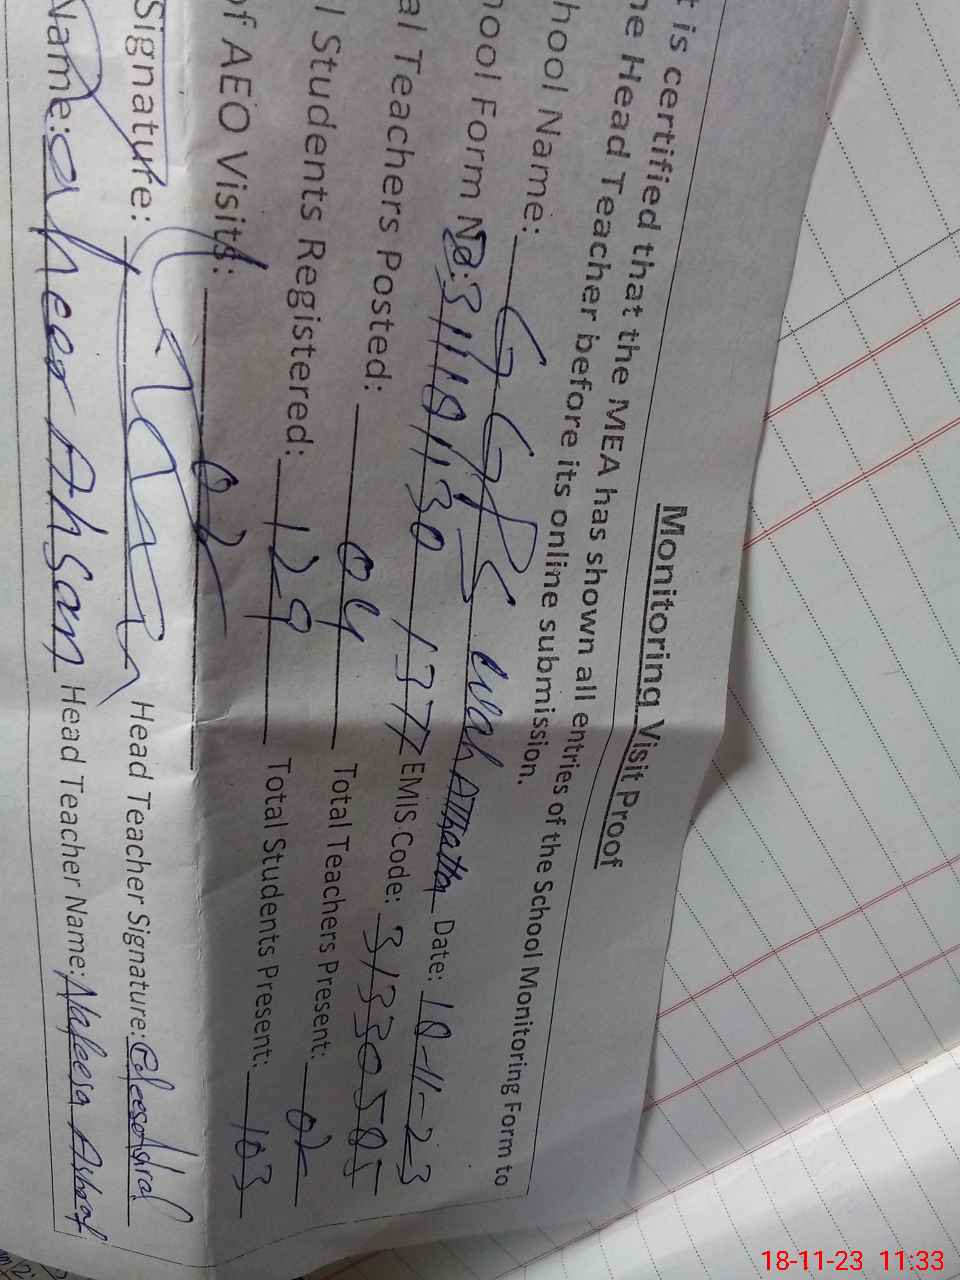 Monitoring Visit Proof
t is certified that the MEA has shown all entries of the School Monitoring Form to
he Head Teacher before its online submission.
hool Name: GGPS Date: 10-11-23
hool Form No: EMIS Code: 31330505
al Teachers Posted: 04 Total Teachers Present: 02
l Students Registered: 129 Total Students Present: 103
of AEO Visits: 02
Signature: Head Teacher Signature:
Name: Ahsan Head Teacher Name: Nafeesa Ashraf
18-11-23 11:33